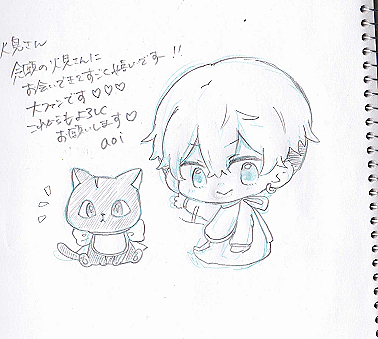 火見さん
念願の火見さんに
お会いできてすごく嬉しいですー!!
大ファンです♡♡♡
これからもよろしく
お願いします♡
aoi